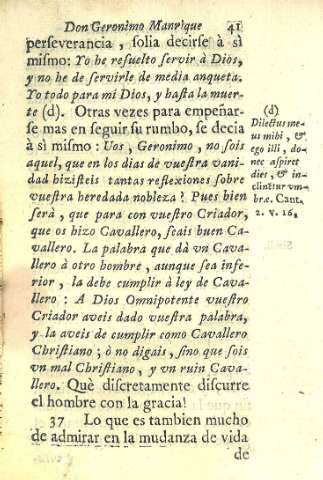 Don Geronimo Manrique 41
perseverancia, solia decirse à sì
mismo: Yo he resuelto servir à Dios,
y no he de servirle de media anqueta.
Yo todo para mi Dios, y hasta la muer-
te (d). Otras vezes para empeñar-
se mas en seguir su rumbo, se decia
à sì mismo: Uos, Geronimo, no sois
aquel, que en los dias de vuestra vani-
dad hizisteis tantas reflexiones sobre
vuestra heredada nobleza? Pues bien
serà, que para con vuestro Criador,
que os hizo Cavallero, seais buen Ca-
vallero. La palabra que dà vn Cava-
llero à otro hombre, aunque sea infe-
rior, la debe cumplir à ley de Cava-
llero: A Dios Omnipotente vuestro
Criador aveis dado vuestra palabra,
y la aveis de cumplir como Cavallero
Christiano; ò no digais, sino que sois
vn mal Christiano, y vn ruin Cava-
llero. Què discretamente discurre
el hombre con la gracia!
37 Lo que es tambien mucho
de admirar en la mudanza de vida
de
(d)
Dilectus me-
us mihi, &
ego illi, do-
nec aspiret
dies, & in-
clinẽtur vm-
bræ. Cant.
2. v. 16.